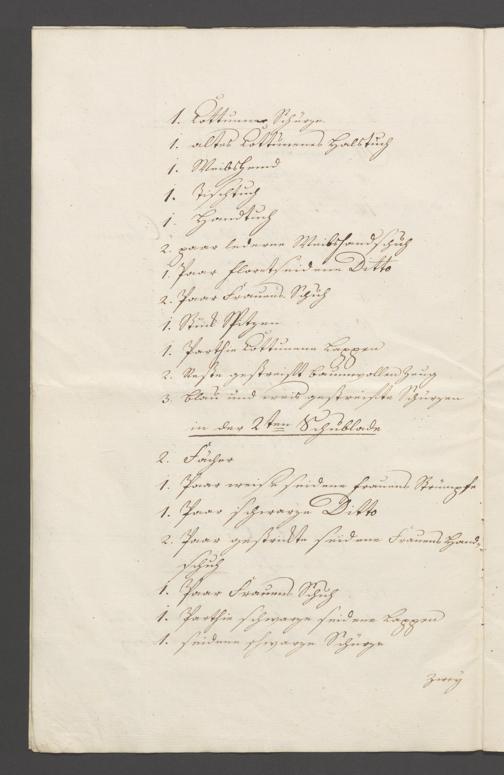 1. Cottunene Schürze
1. altes Cottunenes Halstuch
1. Weibshemd
1. Tischtuch
1. Handtuch
2. paar lederne Weibshandschuh
1 Paar floretseidene Ditto
2. Paar Frauens Schuh
1. Stück Spitzen
1. Parthie Cottunene Lappen
2. Reste gestreifft baumwollen Zeug
3. blau und weis gestreifte Schürzen
in der 2ten Schublade
2. Fächer
1. Paar weiße seidene Frauens Strümpfe
1. Paar schwarze Ditto
2. Paar gestrickte seidene Frauens Hand-
schuh
1. Paar Frauens Schuh
1. Parthie schwarze seidene Lappen
1. seidene schwarze Schürze
Zwey